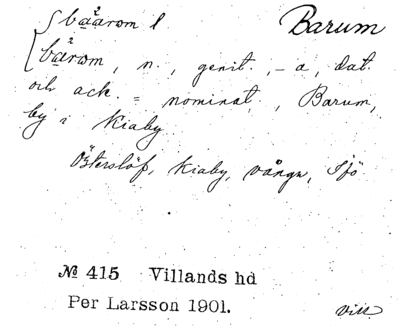 bäårom l Barum
bårom, n., genit. -a, dat.
och ack. = nominat., Barum,
by i Kiaby
Österslöf, Kiaby, vångn, Ifö
№ 415 Villands hd
Per Larsson 1901.
Vill.